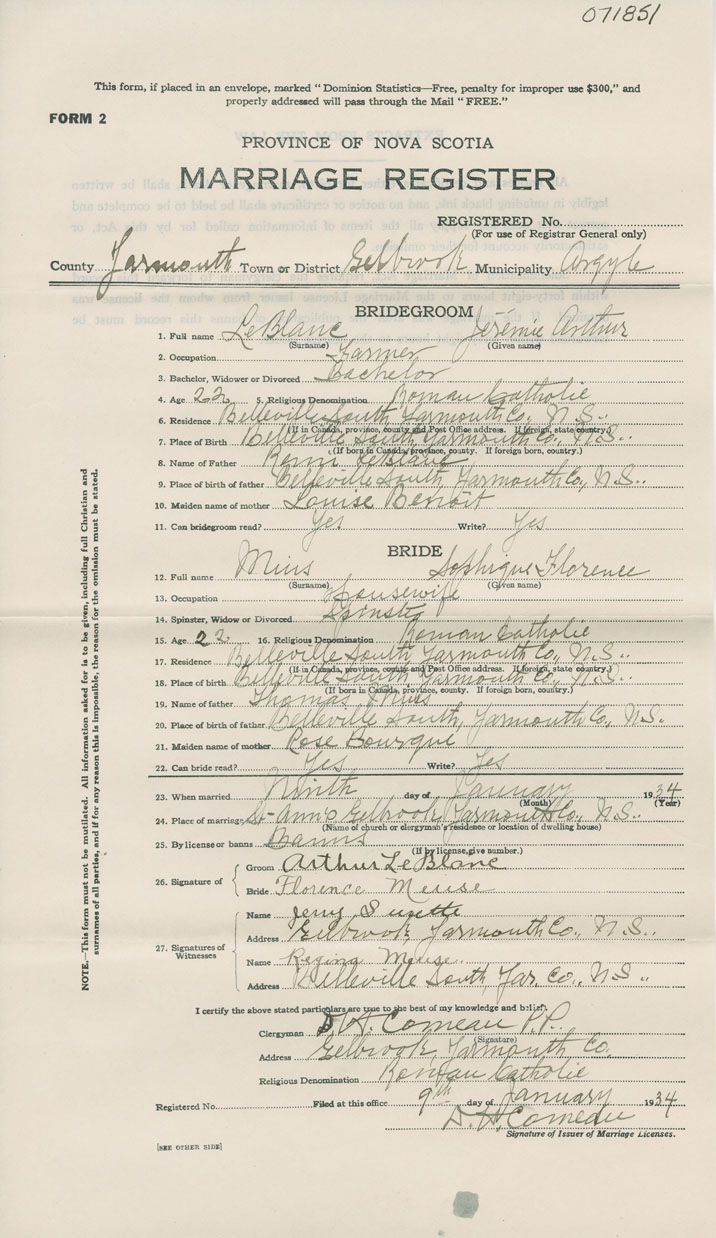 071851
This form, if placed in an envelope, marked "Dominion Statistics—Free, penalty for improper use $300," and
properly addressed will pass through the Mail "FREE."
FORM 2
PROVINCE OF NOVA SCOTIA
MARRIAGE REGISTER
REGISTERED No.
(For use of Registrar General only)
County Yarmouth Town or District Eelbrook Municipality Argyle
BRIDEGROOM
1. Full name LeBlanc Jérémie Arthur
(Surname) (Given name)
2. Occupation Farmer
3. Bachelor, Widower or Divorced Bachelor
4. Age 22 5. Religious Denomination Roman Catholic
6. Residence Belleville South Yarmouth Co., N.S.
(If in Canada, province, county and Post Office address. If foreign, state country.)
7. Place of Birth Belleville South Yarmouth Co., N.S.
(If born in Canada, province, county. If foreign born, country.)
8. Name of Father Remi LeBlanc
9. Place of birth of father Belleville South, Yarmouth Co., N.S.
10. Maiden name of mother Louise Benoit
11. Can bridegroom read? Yes Write? Yes
BRIDE
12. Full name Mius Sophique Florence
(Surname) (Given name)
13. Occupation Housewife
14. Spinster, Widow or Divorced Spinster
15. Age 22 16. Religious Denomination Roman Catholic
17. Residence Belleville South Yarmouth Co., N.S.
(If in Canada, province, county and Post Office address. If foreign, state country.)
18. Place of birth Belleville South Yarmouth Co., N.S.
(If born in Canada, province, county. If foreign born, country.)
19. Name of father Thomas Mius
20. Place of birth of father Belleville South, Yarmouth Co., N.S.
21. Maiden name of mother Rose Bourque
22. Can bride read? Yes Write? Yes
23. When married Ninth day of January 1934
(Month) (Year)
24. Place of marriage St-Ann's Eelbrook, Yarmouth Co., N.S.
(Name of church or clergyman's residence or location of dwelling house)
25. By license or banns Banns
(If by license, give number.)
26. Signature of
Groom Arthur LeBlanc
Bride Florence Meuse
27. Signatures of Witnesses
Name Jerry Surette
Address Eelbrook, Yarmouth Co., N.S.
Name Regina Meuse
Address Belleville South Yar. Co., N.S.
I certify the above stated particulars are true to the best of my knowledge and belief.
Clergyman D. H. Comeau P.P.
(Signature)
Address Eelbrook, Yarmouth Co.
Religious Denomination Roman Catholic
Registered No. Filed at this office 9th day of January 1934
D. H. Comeau
Signature of Issuer of Marriage Licenses.
[SEE OTHER SIDE]
NOTE.—This form must not be mutilated. All information asked for is to be given, including full Christian and
surnames of all parties, and if for any reason this is impossible, the reason for the omission must be stated.